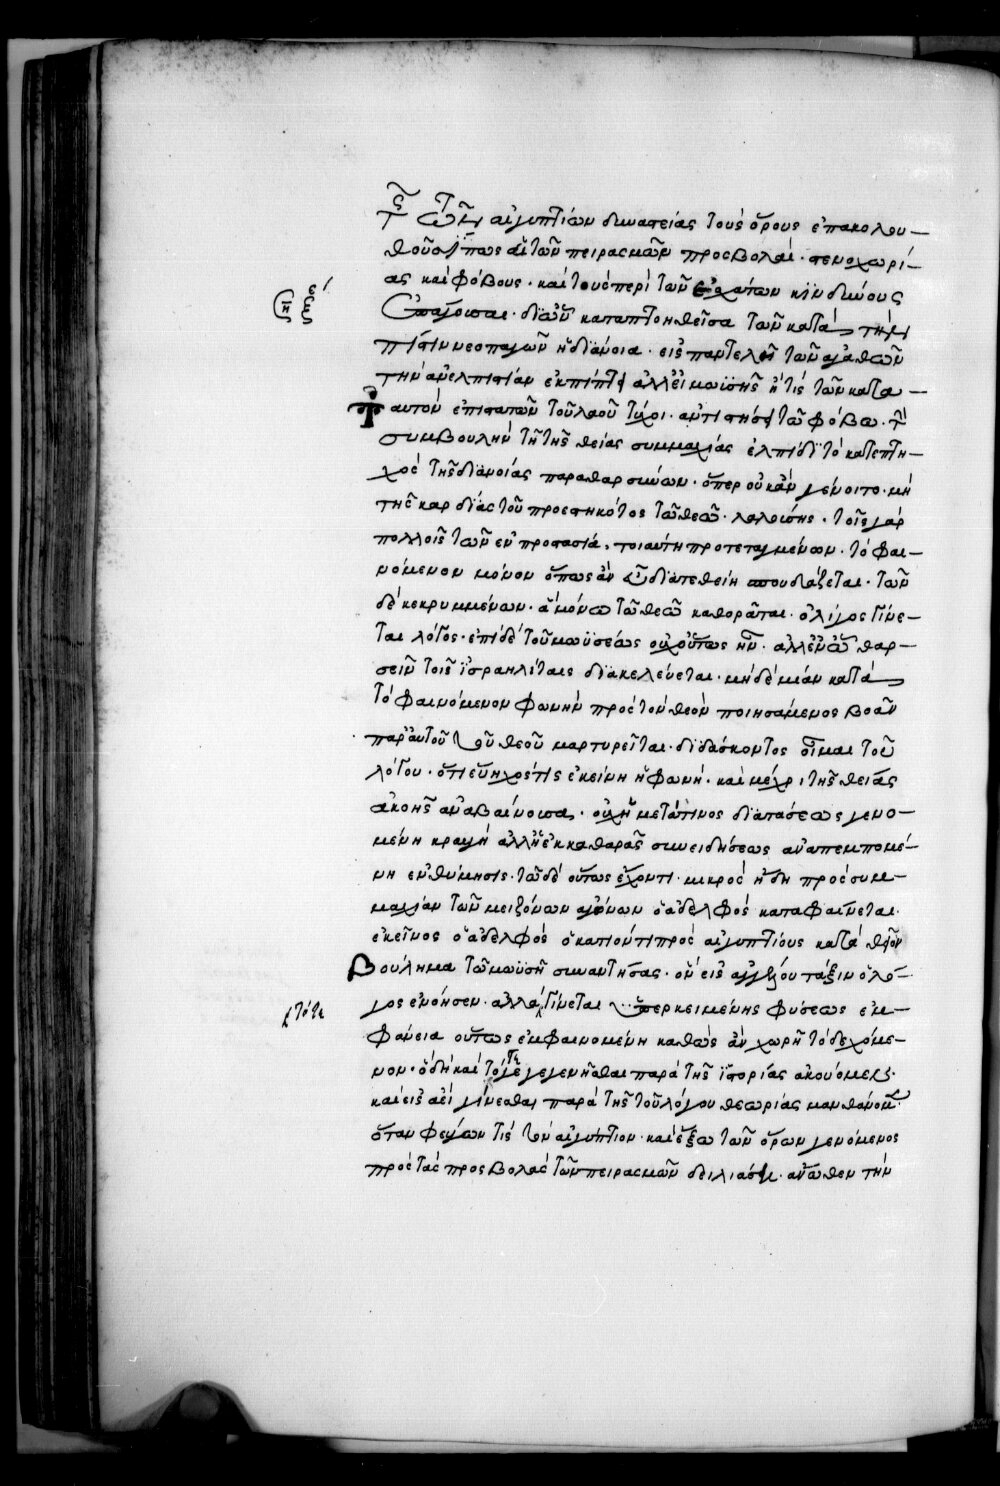 τῶν αἰγυπτίων δυναστείας τοὺς ὅρους ἐπακολου-
θοῦσί πως αἱ τῶν πειρασμῶν προσβολαὶ. στενοχωρί-
ας καὶ φόβους. καὶ τοὺς περὶ τῶν ἐσχάτων κινδύνους
ἐπάγουσαι. δι' ὧν καταπτοηθεῖσα τῶν κατὰ τὴν
πίστιν νεοπαγῶν ἡ διάνοια. εἰς παντελῆ τῶν ἀγαθῶν
τὴν ἀνελπιστίαν ἐκπίπτει ἀλλ' εἰ μωϋσῆς ἤ τις τῶν κατ'
αὐτὸν ἐπιστατῶν τοῦ λαοῦ τύχοι. ἀντιστήσει τῷ φόβῳ. τὴν
συμβουλὴν τῇ τῆς θείας συμμαχίας ἐλπίδι τὸ κατεπτη-
χὸς τῆς διανοίας παραθαρσύνων. ὅπερ οὐκ ἂν γένοιτο. μὴ
τῆς καρδίας τοῦ προεστηκότος τῷ θεῷ λαλούσης. τοῖς γὰρ
πολλοῖς τῶν ἐν προστασίᾳ, τοιαύτῃ προτεταγμένων. τὸ φαι-
νόμενον μόνον ὅπως ἂν εὖ διατεθείη σπουδάζεται. τῶν
δὲ κεκρυμμένων. ἃ μόνῳ τῷ θεῷ καθορᾶται. ὀλίγος γίνε-
ται λόγος. ἐπὶ δὲ τοῦ μωϋσέως οὐχ οὕτως ἦν. ἀλλ' ἐν ᾧ θαρ-
σεῖν τοῖς ἰσραηλίταις διακελεύεται. μηδεμίαν κατὰ
τὸ φαινόμενον φωνὴν πρὸς τὸν θεὸν ποιησάμενος βοᾶν
παρ' αὐτοῦ τοῦ θεοῦ μαρτυρεῖται. διδάσκοντος οἶμαι τοῦ
λόγου. ὅτι εὔηχός τις ἐκείνη ἡ φωνὴ. καὶ μέχρι τῆς θείας
ἀκοῆς ἀναβαίνουσα. οὐχ ἡ μετά τινος διατάσεως γενο-
μένη κραυγὴ ἀλλ' ἡ ἐκ καθαρᾶς συνειδήσεως ἀναπεμπομέ-
νη ἐνθύμησις. τῷ δὲ οὕτως ἔχοντι. μικρὸς ἤδη πρὸς συμ-
μαχίαν τῶν μειζόνων ἀγώνων ὁ ἀδελφὸς καταφαίνεται.
ἐκεῖνος ὁ ἀδελφὸς ὁ κατιόντι πρὸς αἰγυπτίους κατὰ θεῖον
βούλημα τῷ μωϋσῇ συναντήσας. ὃν εἰς ἀγγέλου τάξιν ὁ λό-
γος ἐνόησεν. ἀλλὰ γίνεται ὑπερκειμένης φύσεως ἐμ-
φάνεια οὕτως ἐμφαινομένη καθὼς ἂν χωρῇ τὸ δεχόμε-
νον. ὃ δὴ καὶ τότε γεγενῆσθαι παρὰ τῆς ἱστορίας ἀκούομεν.
καὶ εἰς ἀεὶ γίνεσθαι παρὰ τῆς τοῦ λόγου θεωρίας μανθάνομεν.
ὅταν φεύγων τις τὸν αἰγύπτιον. καὶ ἔξω τῶν ὅρων γενόμενος
πρὸς τὰς προσβολὰς τῶν πειρασμῶν δειλιάσῃ. ἄνωθεν τὴν
τότε